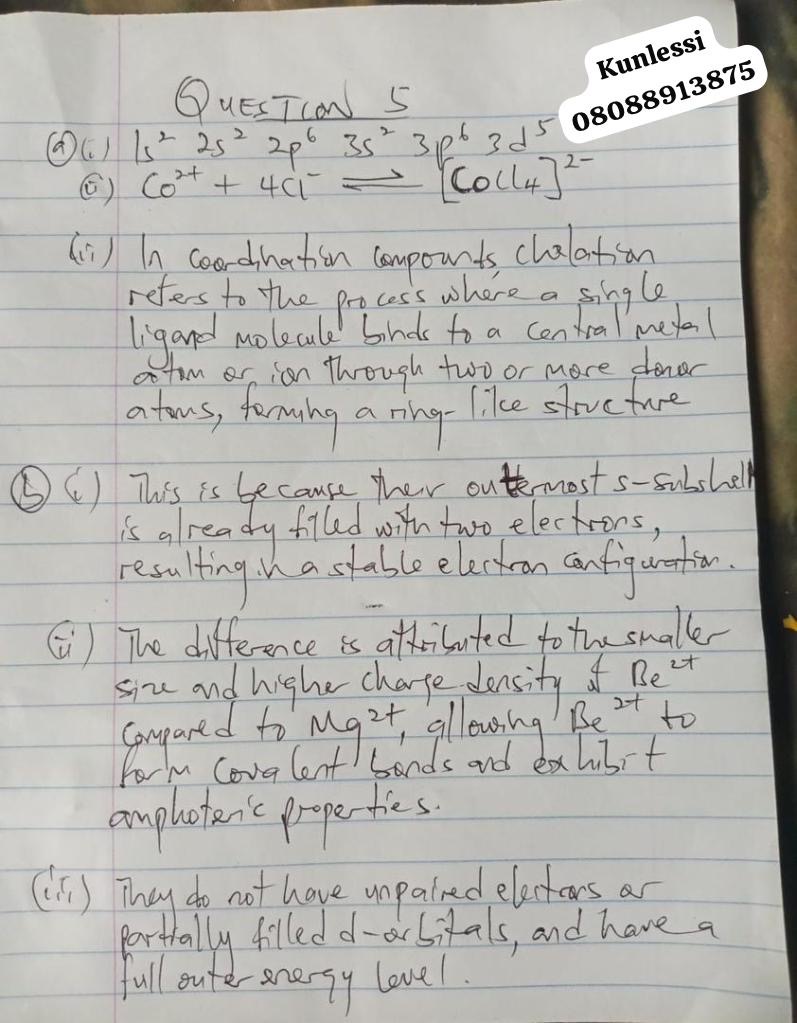 Kunlessi
08088913875
QUESTION 5
(a)(i) 1s² 2s² 2p⁶ 3s² 3p⁶ 3d⁵
(ii) Co²⁺ + 4Cl⁻ ⇌ [CoCl₄]²⁻
(iii) In coordination compounds, chelation
refers to the process where a single
ligand molecule binds to a central metal
atom or ion through two or more donor
atoms, forming a ring-like structure
(b) (i) This is because their outtermost s-subshell
is already filled with two electrons,
resulting in a stable electron configuration.
(ii) The difference is attributed to the smaller
size and higher charge density of Be²⁺
compared to Mg²⁺, allowing Be²⁺ to
form covalent bonds and exhibit
amphoteric properties.
(iii) They do not have unpaired electrons or
partially filled d-orbitals, and have a
full outer energy level.